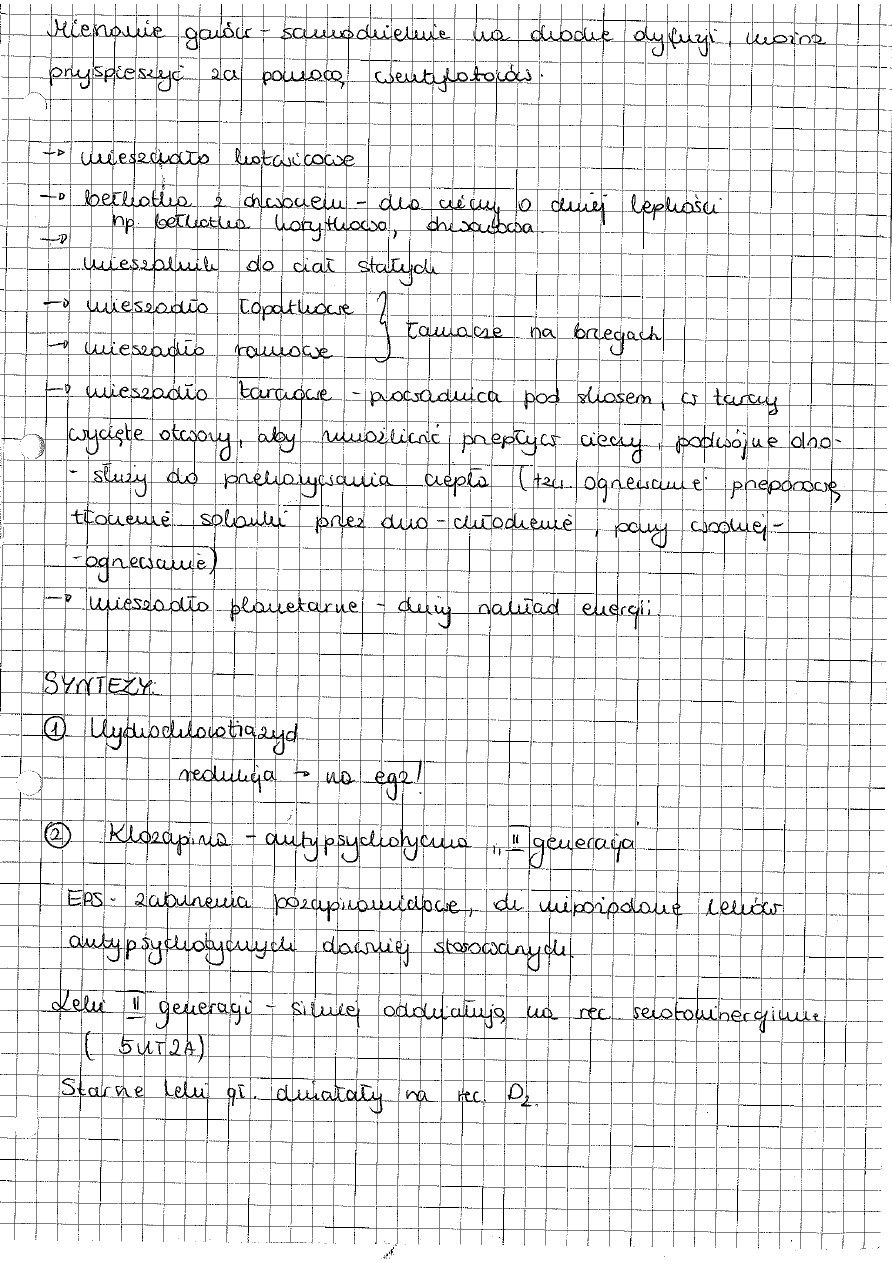 Mieszanie gazów - samodzielnie na drodze dyfuzji, można
przyspieszyć za pomocą wentylatorów.
→ mieszadło kotwicowe
→ bełkotka z chwostem - dla cieczy o dużej lepkości
np. bełkotka korytkowa,
→
mieszalnik do ciał stałych
→ mieszadło łopatkowe
→ mieszadło ramowe } łamacze na brzegach
→ mieszadło tarczowe - prowadnica pod skosem, w tarczy
wycięte otwory, aby umożliwić przepływ cieczy, podwójne dno-
- służy do przekazywania ciepła (tzn ogrzewanie preparacje,
tłoczenie solanki przez dno - chłodzenie, pary wodnej-
-ogrzewanie)
→ mieszadło planetarne - duży nakład energii
SYNTEZY:
① Hydrochlorotiazyd
redukcja → na egz!
② Klozapina - antypsychotyczna „II generacja"
EPS - zaburzenia pozapiramidowe, dz niepożądane leków
antypsychotycznych dawniej stosowanych.
Leki II generacji - silniej oddziałują na rec serotoninergiczne
( 5HT2A)
Starsze leki gł. działały na rec. D₂.